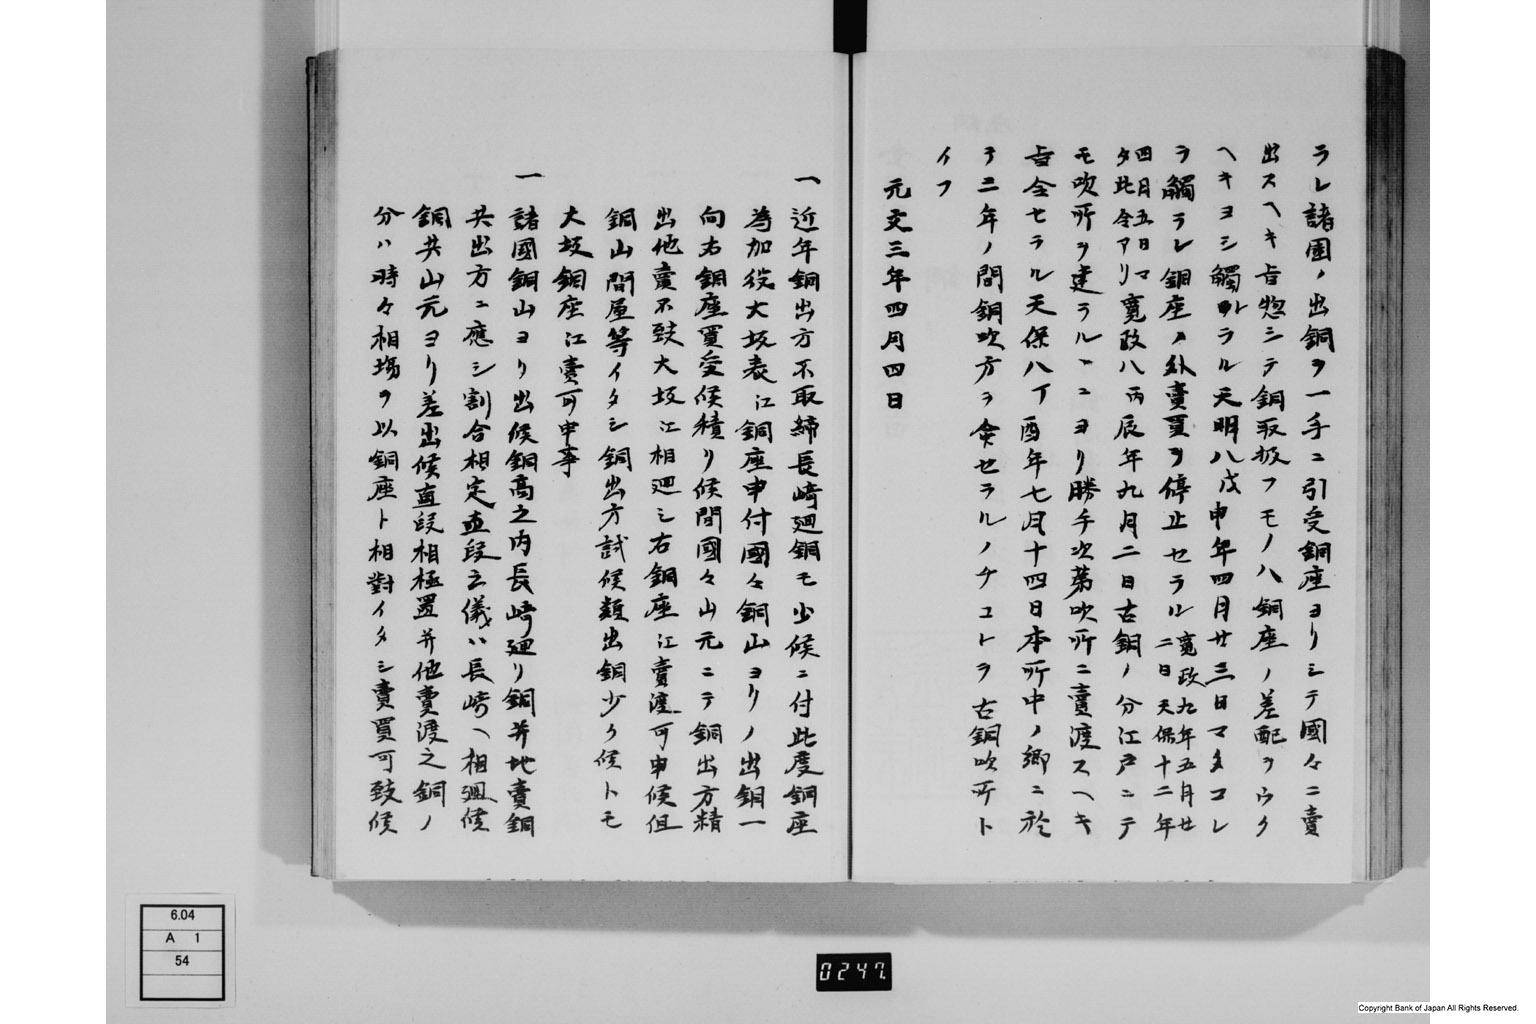 ラレ諸國ノ出銅ヲ一手ニ引受銅座ヨリシテ國々ニ賣
出スヘキ旨惣シテ銅取扱フモノハ銅座ノ差配ヲウク
ヘキヨシ觸ラル天明八戊申年四月廿三日マタコレ
ヲ觸ラレ銅座ノ外賣買ヲ停止セラル寛政九年五月廿二日天保十二年
四月五日マタ此令アリ寛政八丙辰年九月二日古銅ノ分江戸ニテ
モ吹所ヲ建ラルヽニヨリ勝手次第吹所ニ賣渡スヘキ
旨令セラル天保八丁酉年七月十四日本所中ノ郷ニ於
テ三年ノ間銅吹方ヲ命セラルノチコトラ古銅吹所ト
イフ
元文三年四月四日
一近年銅出方不取締長崎廻銅モ少候ニ付此度銅座
為加役大坂表江銅座申付國々銅山ヨリノ出銅一
向右銅座買受候積リ候間國々山元ニテ銅出方精
出他賣不致大坂江相廻シ右銅座江賣渡可申候但
銅山問屋等イタシ銅出方試候類出銅少ク候トモ
大坂銅座江賣可申事
一諸國銅山ヨリ出候銅高之内長崎廻リ銅并地賣銅
共出方ニ應シ割合相定直段之儀ハ長崎ヘ相廻候
銅共山元ヨリ差出候直段相極置并他賣渡之銅ノ
分ハ時々相場ヲ以銅座ト相對イタシ賣買可致候
6.04
A 1
54
0247.
Copyright Bank of Japan All Rights Reserved.